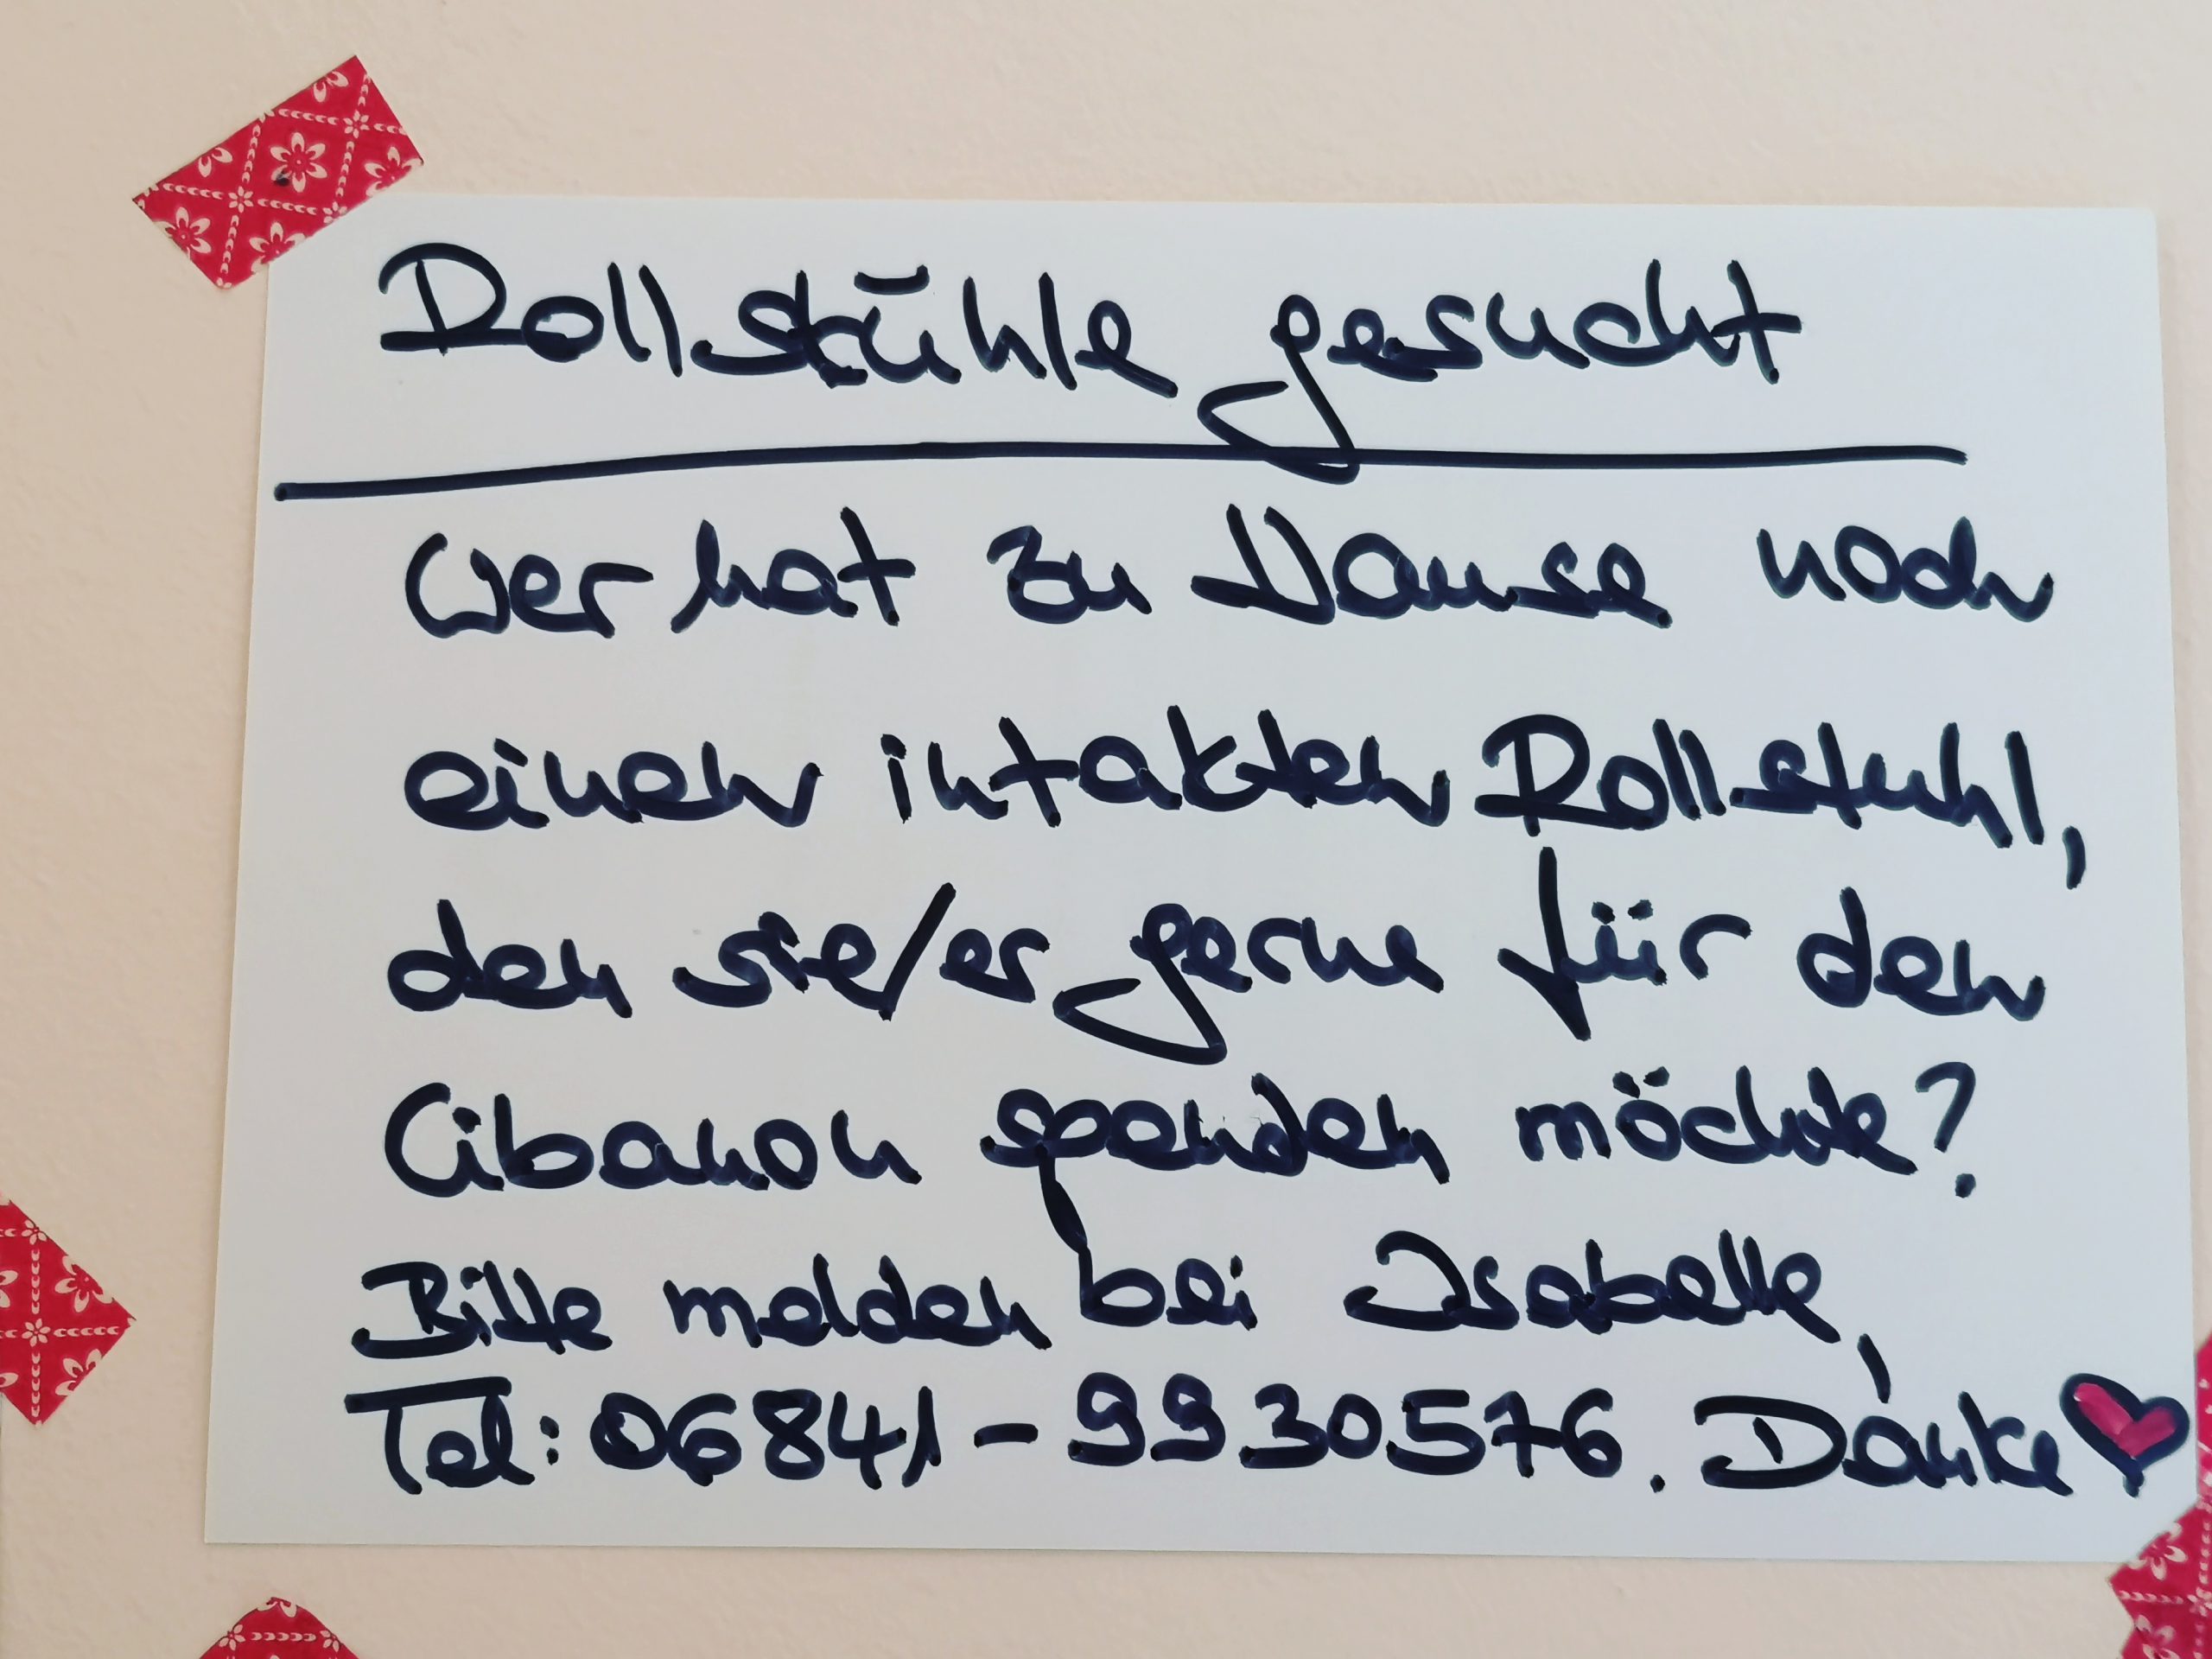 Rollstühle gesucht
Wer hat zu Hause noch
einen intakten Rollstuhl,
den sie/er gerne für den
Libanon spenden möchte?
Bitte melden bei Isabelle,
Tel: 06841-9930576. Danke